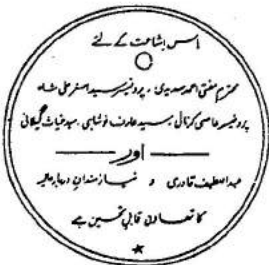 اس اشاعت کے لئے
محترم مفتی احمد سدیدی ، پروفیسر سید اصغر علی شاہ
پروفیسر عاصی کرنالی سید عارف نوشاہی ، سید غیاث گیلانی
اور
عبداللطیف قادری و نیازمندانِ دربارِ عالیہ
کا تعاون قابلِ تحسین ہے